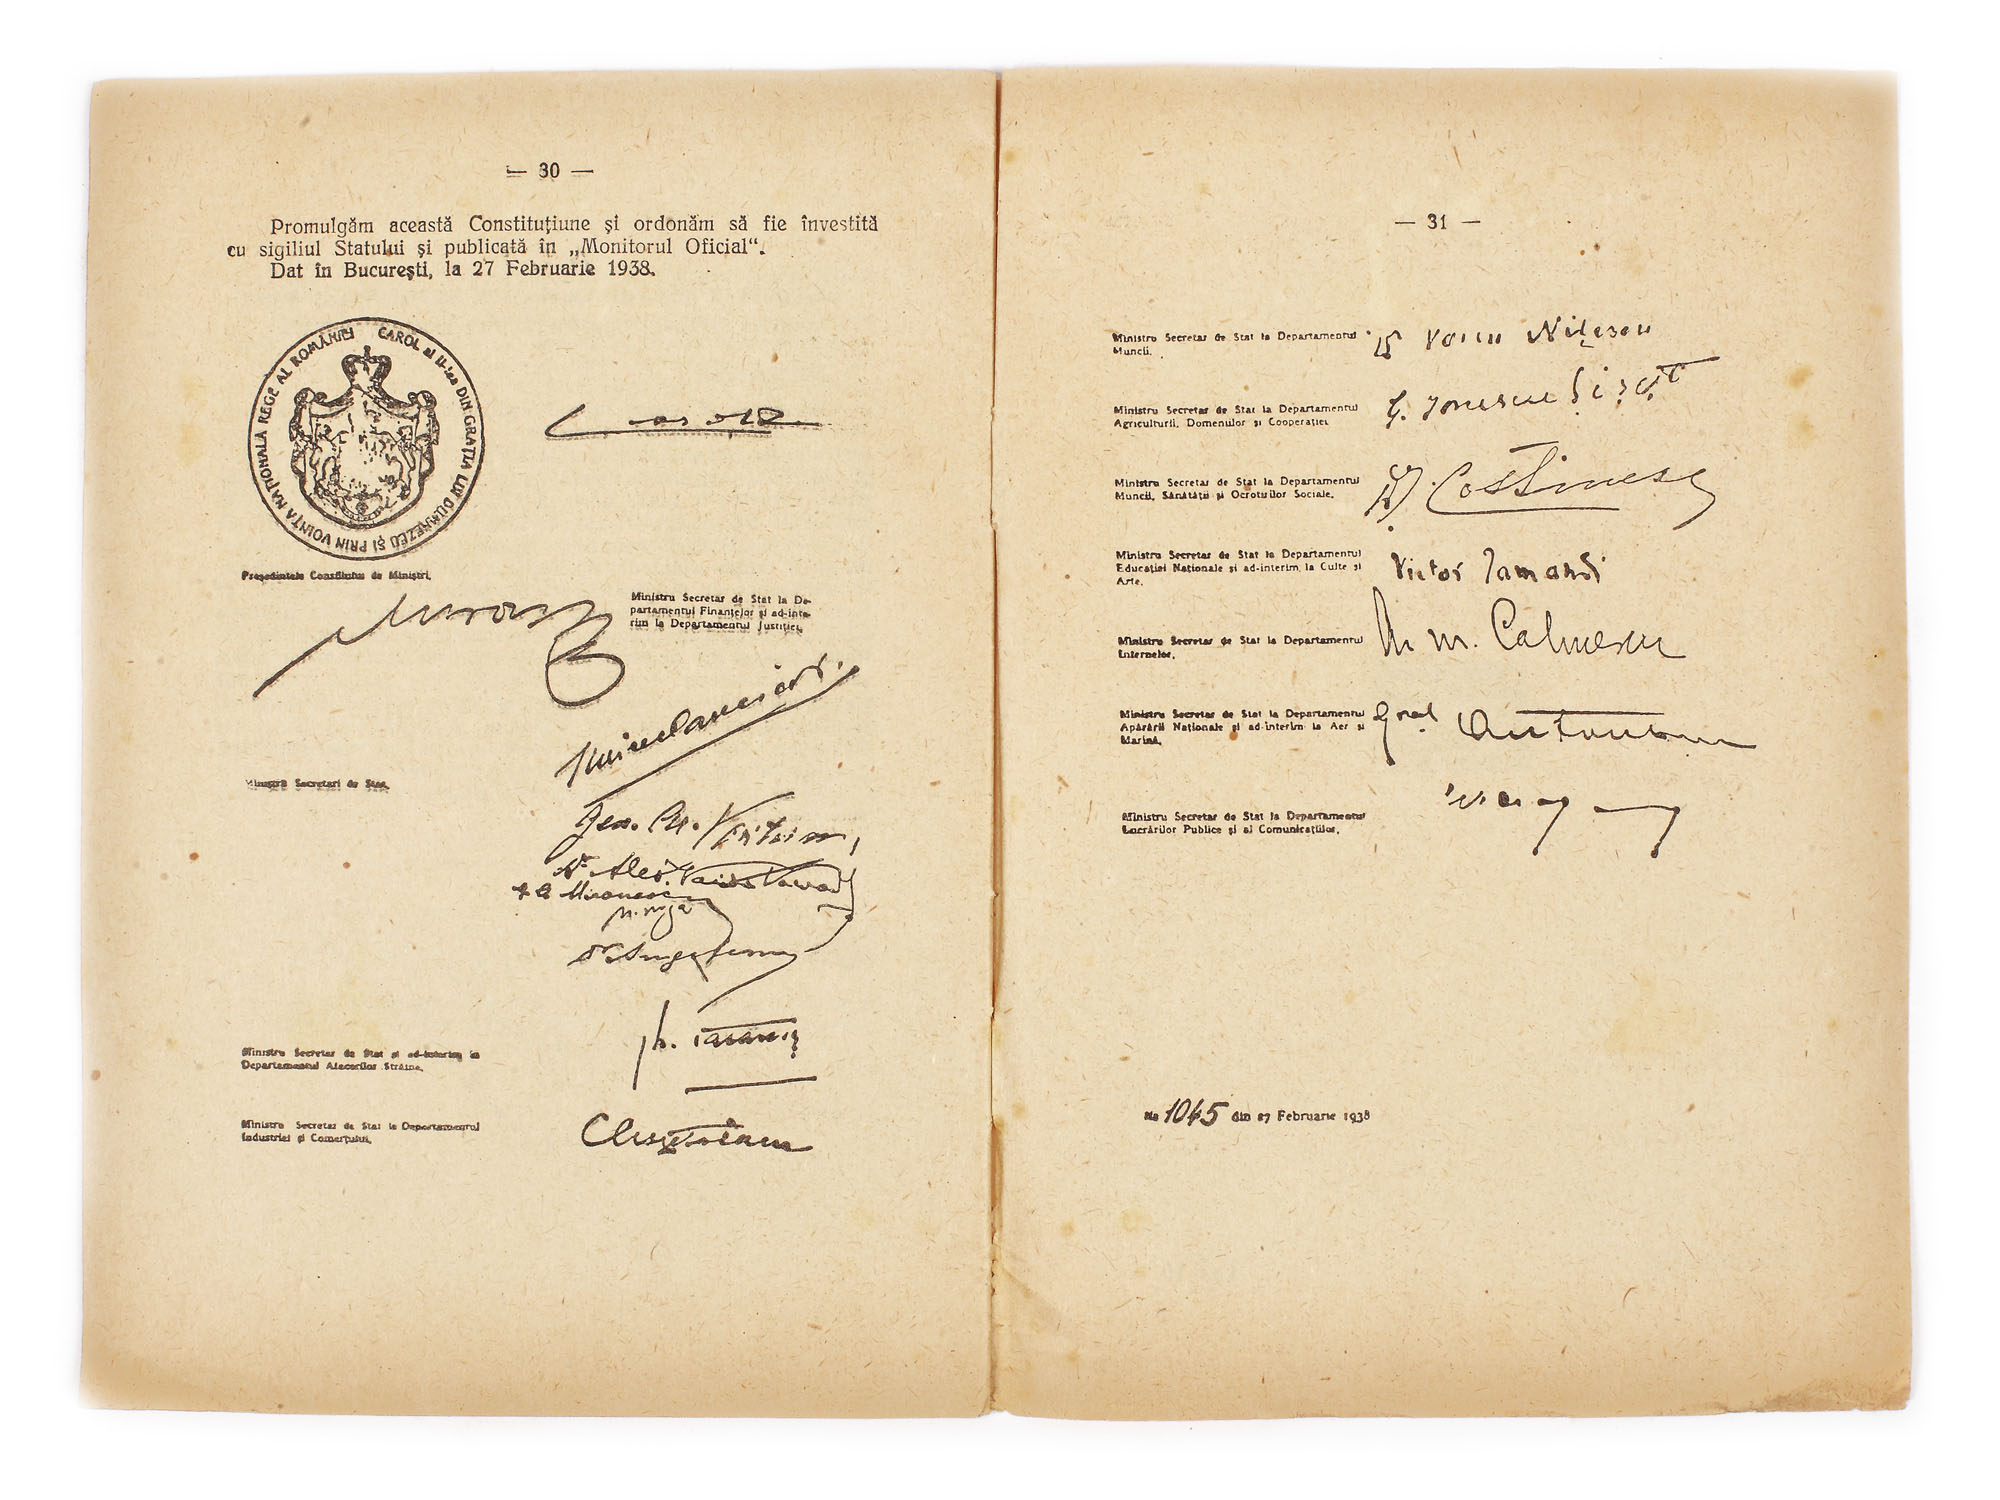 — 30 —
Promulgăm această Constituțiune și ordonăm să fie învestită
cu sigiliul Statului și publicată în „Monitorul Oficial“.
Dat în București, la 27 Februarie 1938.
CAROL al II-lea DIN GRAȚIA LUI DUMNEZEU ȘI PRIN VOINȚA NAȚIONALĂ REGE AL ROMÂNIEI
Carol
Președintele Consiliului de Miniștri,
Miron
Ministru Secretar de Stat la De-
partamentul Finanțelor și ad-inte-
rim la Departamentul Justiției,
Miniștrii Secretari de Stat,
Gen.
Dr. Alex. Vaida Voevod
Mironescu
Dr. Angelescu
Ministru Secretar de Stat și ad-interim la
Departamentul Afacerilor Străine,
Ministru Secretar de Stat la Departamentul
Industriei și Comerțului,
— 31 —
Ministru Secretar de Stat la Departamentul
Muncii,
Voicu Nițescu
Ministru Secretar de Stat la Departamentul
Agriculturii, Domeniilor și Cooperației
G. Ionescu Sisești
Ministru Secretar de Stat la Departamentul
Muncii, Sănătății și Ocrotirilor Sociale,
Costinescu
Ministru Secretar de Stat la Departamentul
Educației Naționale și ad-interim la Culte și
Arte,
Victor Iamandi
Ministru Secretar de Stat la Departamentul
Internelor,
Calinescu
Ministru Secretar de Stat la Departamentul
Apărării Naționale și ad-interim la Aer și
Marină,
Gral Antonescu
Ministru Secretar de Stat la Departamentul
Lucrărilor Publice și al Comunicațiilor,
No 1045 din 27 Februarie 1938